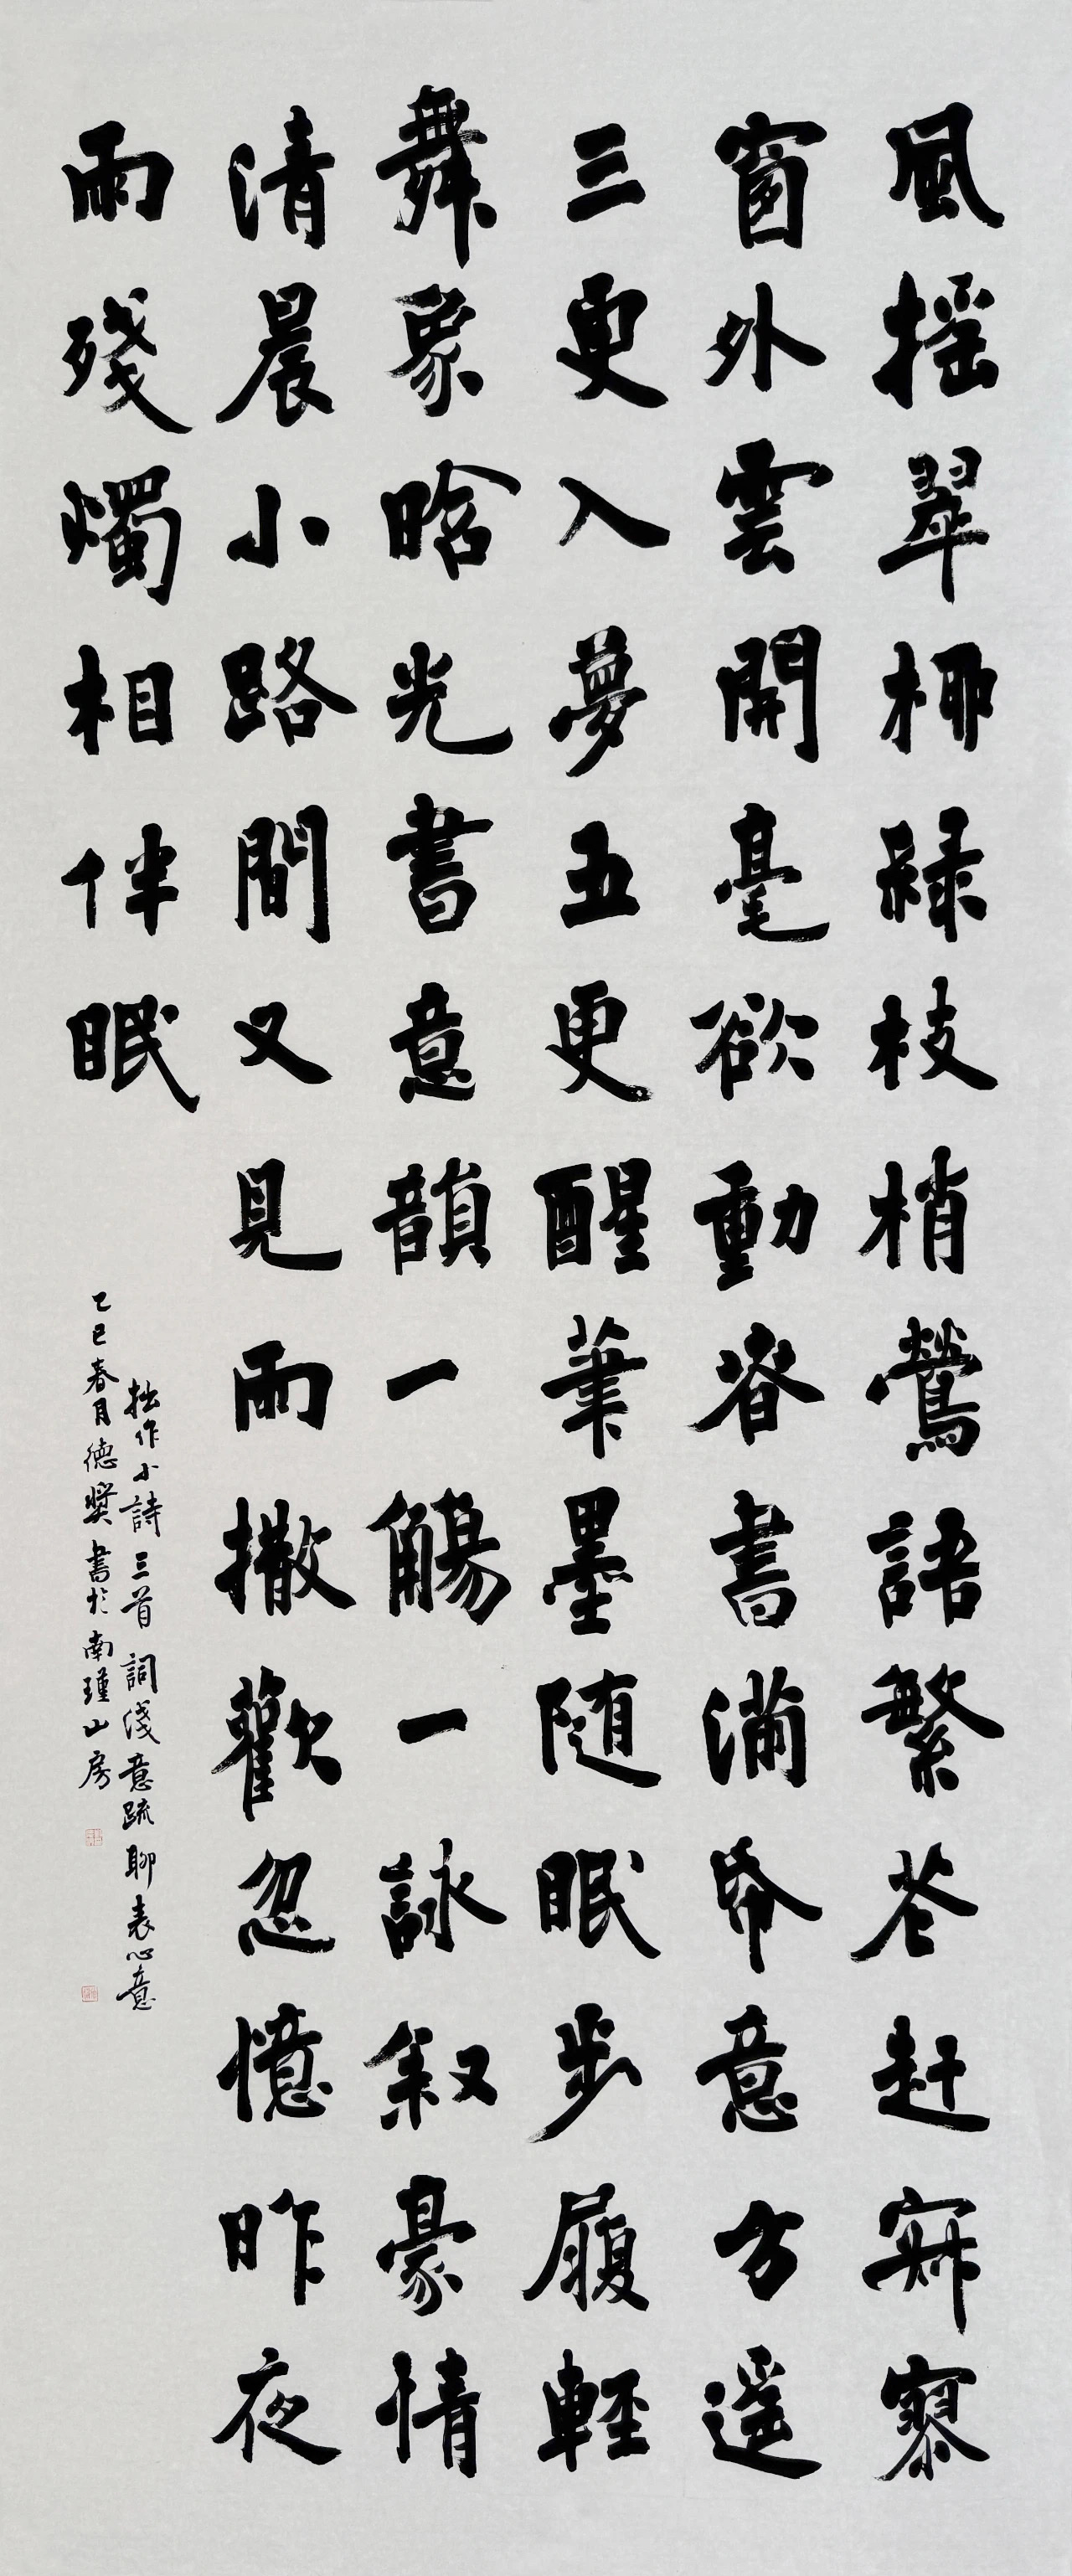 風搖翠柳緑枝梢鶯語繁花赶寂寥
窗外雲開毫欲動春書滿帋意方遥
三更入夢五更醒筆墨随眠步履輕
舞象晗光書意韻一觴一詠叙豪情
清晨小路間又見雨撒歡忽憶昨夜
雨殘燭相伴眠
拙作小詩三首詞淺意疏聊表心意
乙巳春月德奬書於南瑾山房